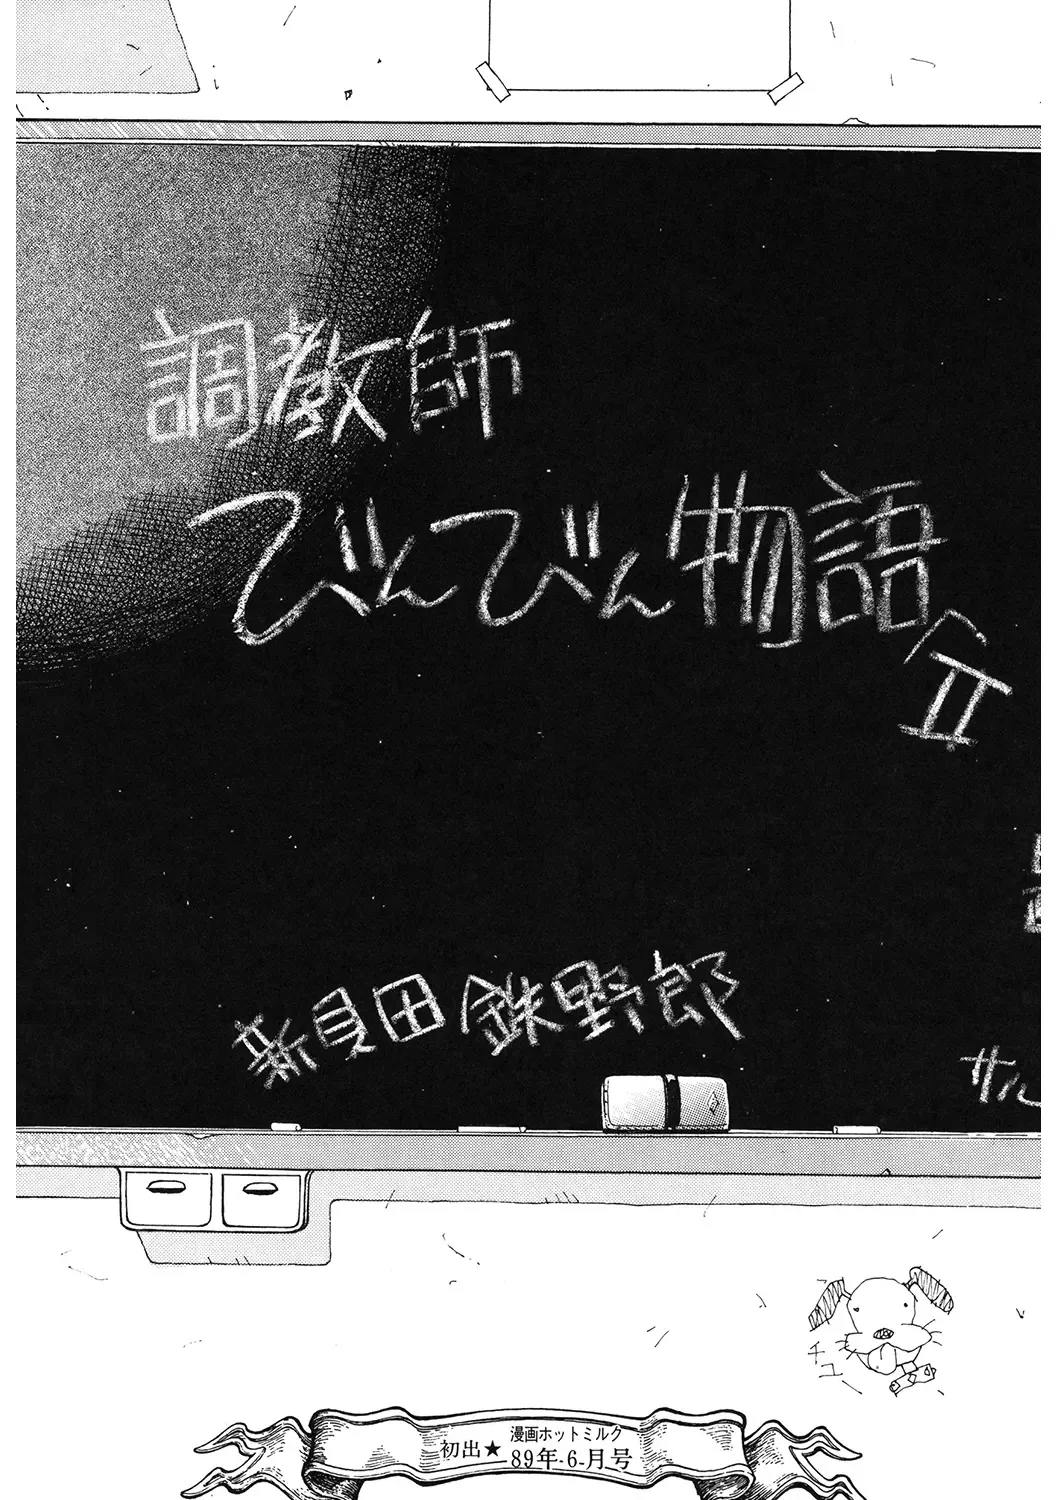 調教師
びんびん物語
II
新貝田鉄野郎
サル
チュー
初出★
漫画ホットミルク
89年-6-月号